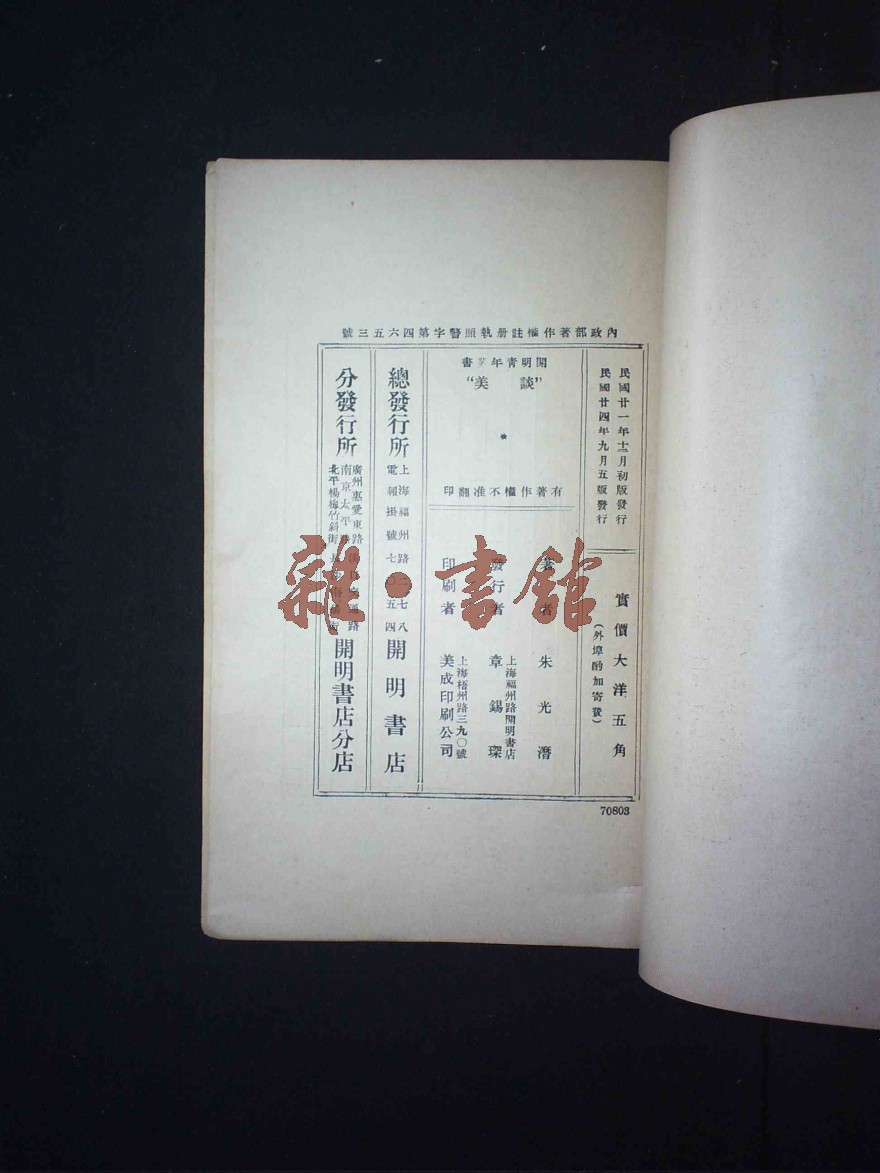 內政部著作權註册執照警字第四六五三號
民國廿一年十二月初版發行
民國廿四年九月五版發行
實價大洋五角
(外埠酌加寄費)
開明青年書
"談美"
有著作權不准翻印
著者 朱光潛
發行者 章錫琛
上海福州路開明書店
印刷者 美成印刷公司
上海梧州路三九〇號
總發行所
上海福州路二七八
電報掛號七〇五四
開明書店
分發行所
廣州惠愛東路
南京太平路
北平楊梅竹斜街
開明書店分店
70803
雜·書館